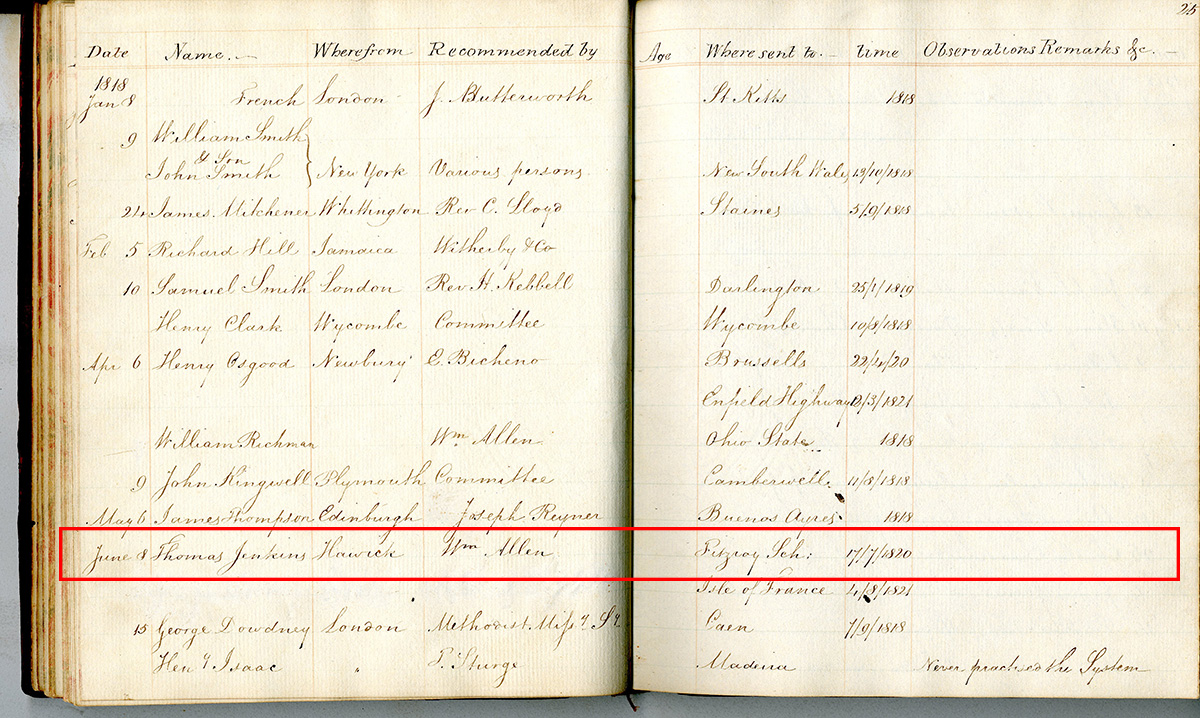 25
Date Name. Where from Recommended by Age Where sent to. time Observations Remarks &c.
1818
Jan 8 French London J. Butterworth St Kitts 1818
9 William Smith
& Son
John Smith New York Various persons. New South Wales 13/10/1818
24 James Mitchener Whittington Rev C. Lloyd Staines 5/9/1818
Feb 5 Richard Hill Jamaica Witherby & Co
10 Samuel Smith London Rev H. Kebbell Darlington 25/1/1819
Henry Clark Wycombe Committee Wycombe 19/8/1818
Apr 6 Henry Osgood Newbury E. Bicheno Brussells 22/4/20
Enfield Highway 12/3/1821
William Richman Wm Allen Ohio State 1818
9 John Kingwell Plymouth Committee Camberwell. 11/8/1818
May 6 James Thompson Edinburgh Joseph Reyner Buenos Ayres 1818
June 8 Thomas Jenkins Hawick Wm Allen Fitzroy Sch: 17/7/1820
Isle of France 4/8/1821
15 George Dowdney London Methodist Missy Sy Caen 7/9/1818
Heny Isaac " P. Sturge Madeira Never practised the System